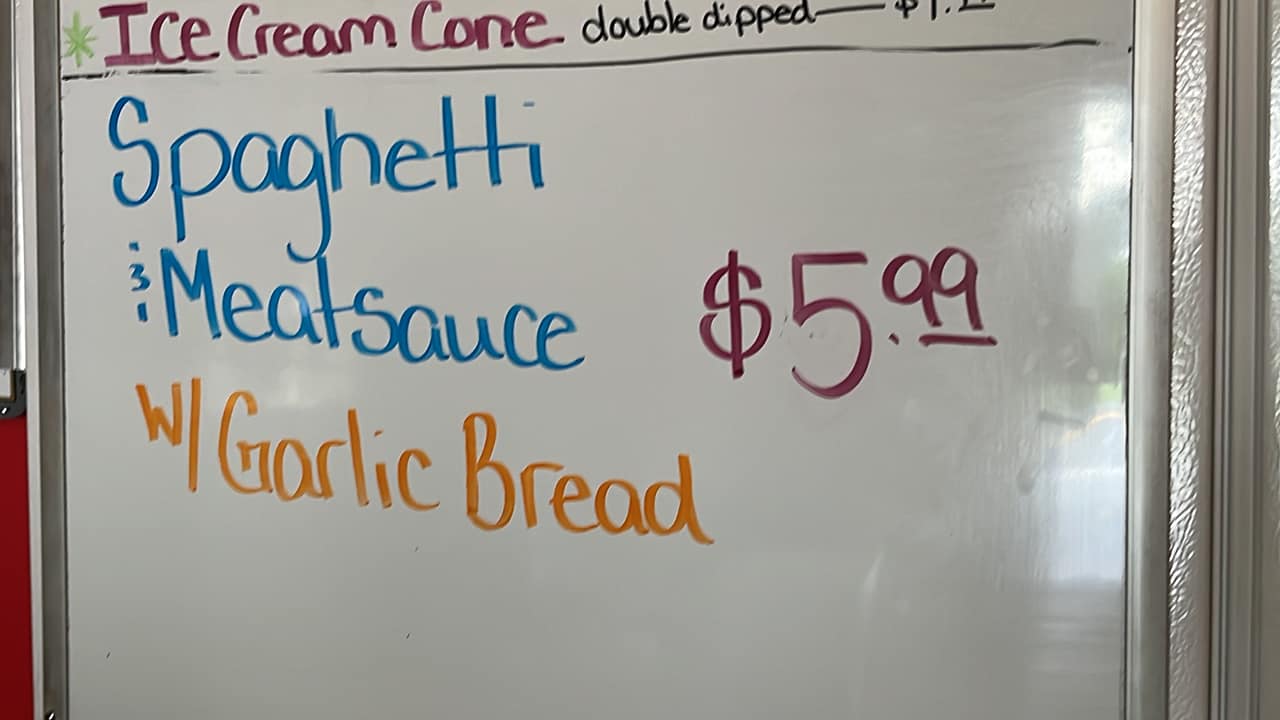 * Ice Cream Cone double dipped
Spaghetti
& Meatsauce $5.99
w/ Garlic Bread